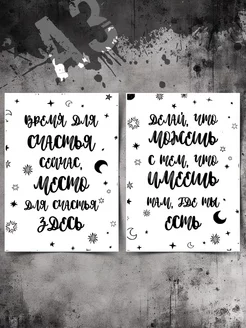 A3
ВРЕМЯ ДЛЯ
СЧАСТЬЯ
СЕЙЧАС,
МЕСТО
ДЛЯ СЧАСТЬЯ
ЗДЕСЬ
ДЕЛАЙ, ЧТО
МОЖЕШЬ
С ТЕМ, ЧТО
ИМЕЕШЬ
ТАМ, ГДЕ ТЫ
ЕСТЬ